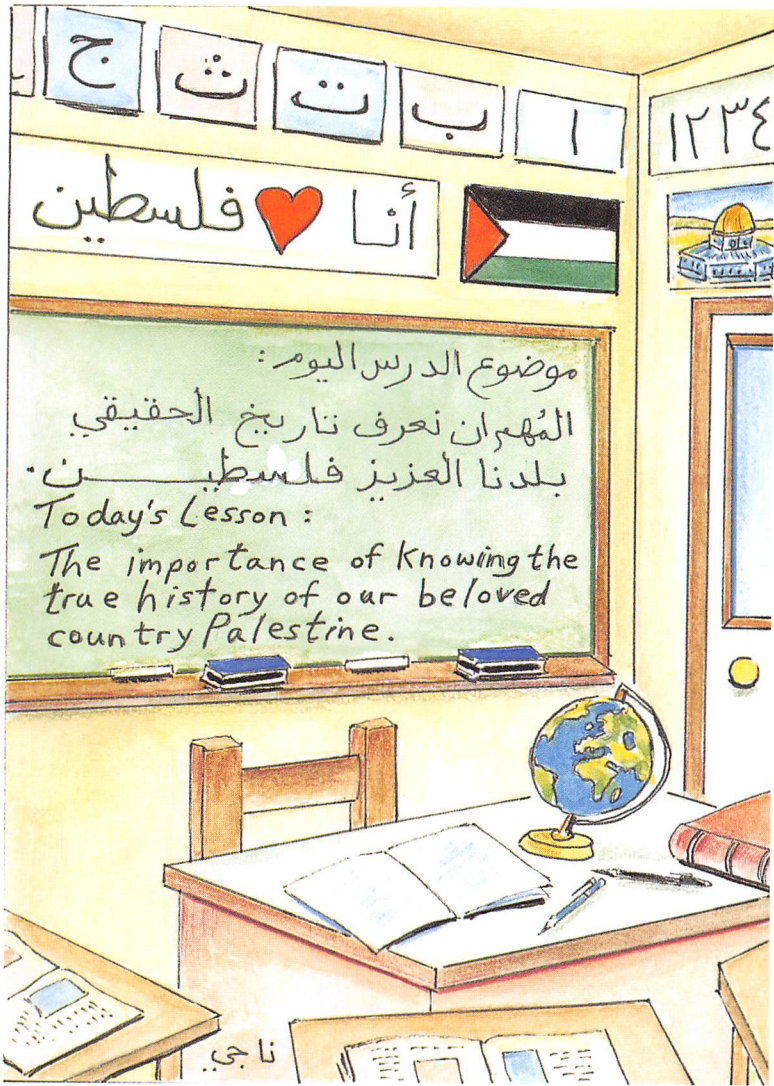 ا ب ت ث ج
١٢٣٤
أنا ❤ فلسطين
موضوع الدرس اليوم:
المُهم ان نعرف تاريخ الحقيقي
بلدنا العزيز فلسطيــــن.
Today's Lesson :
The importance of knowing the
true history of our beloved
country Palestine.
ناجي